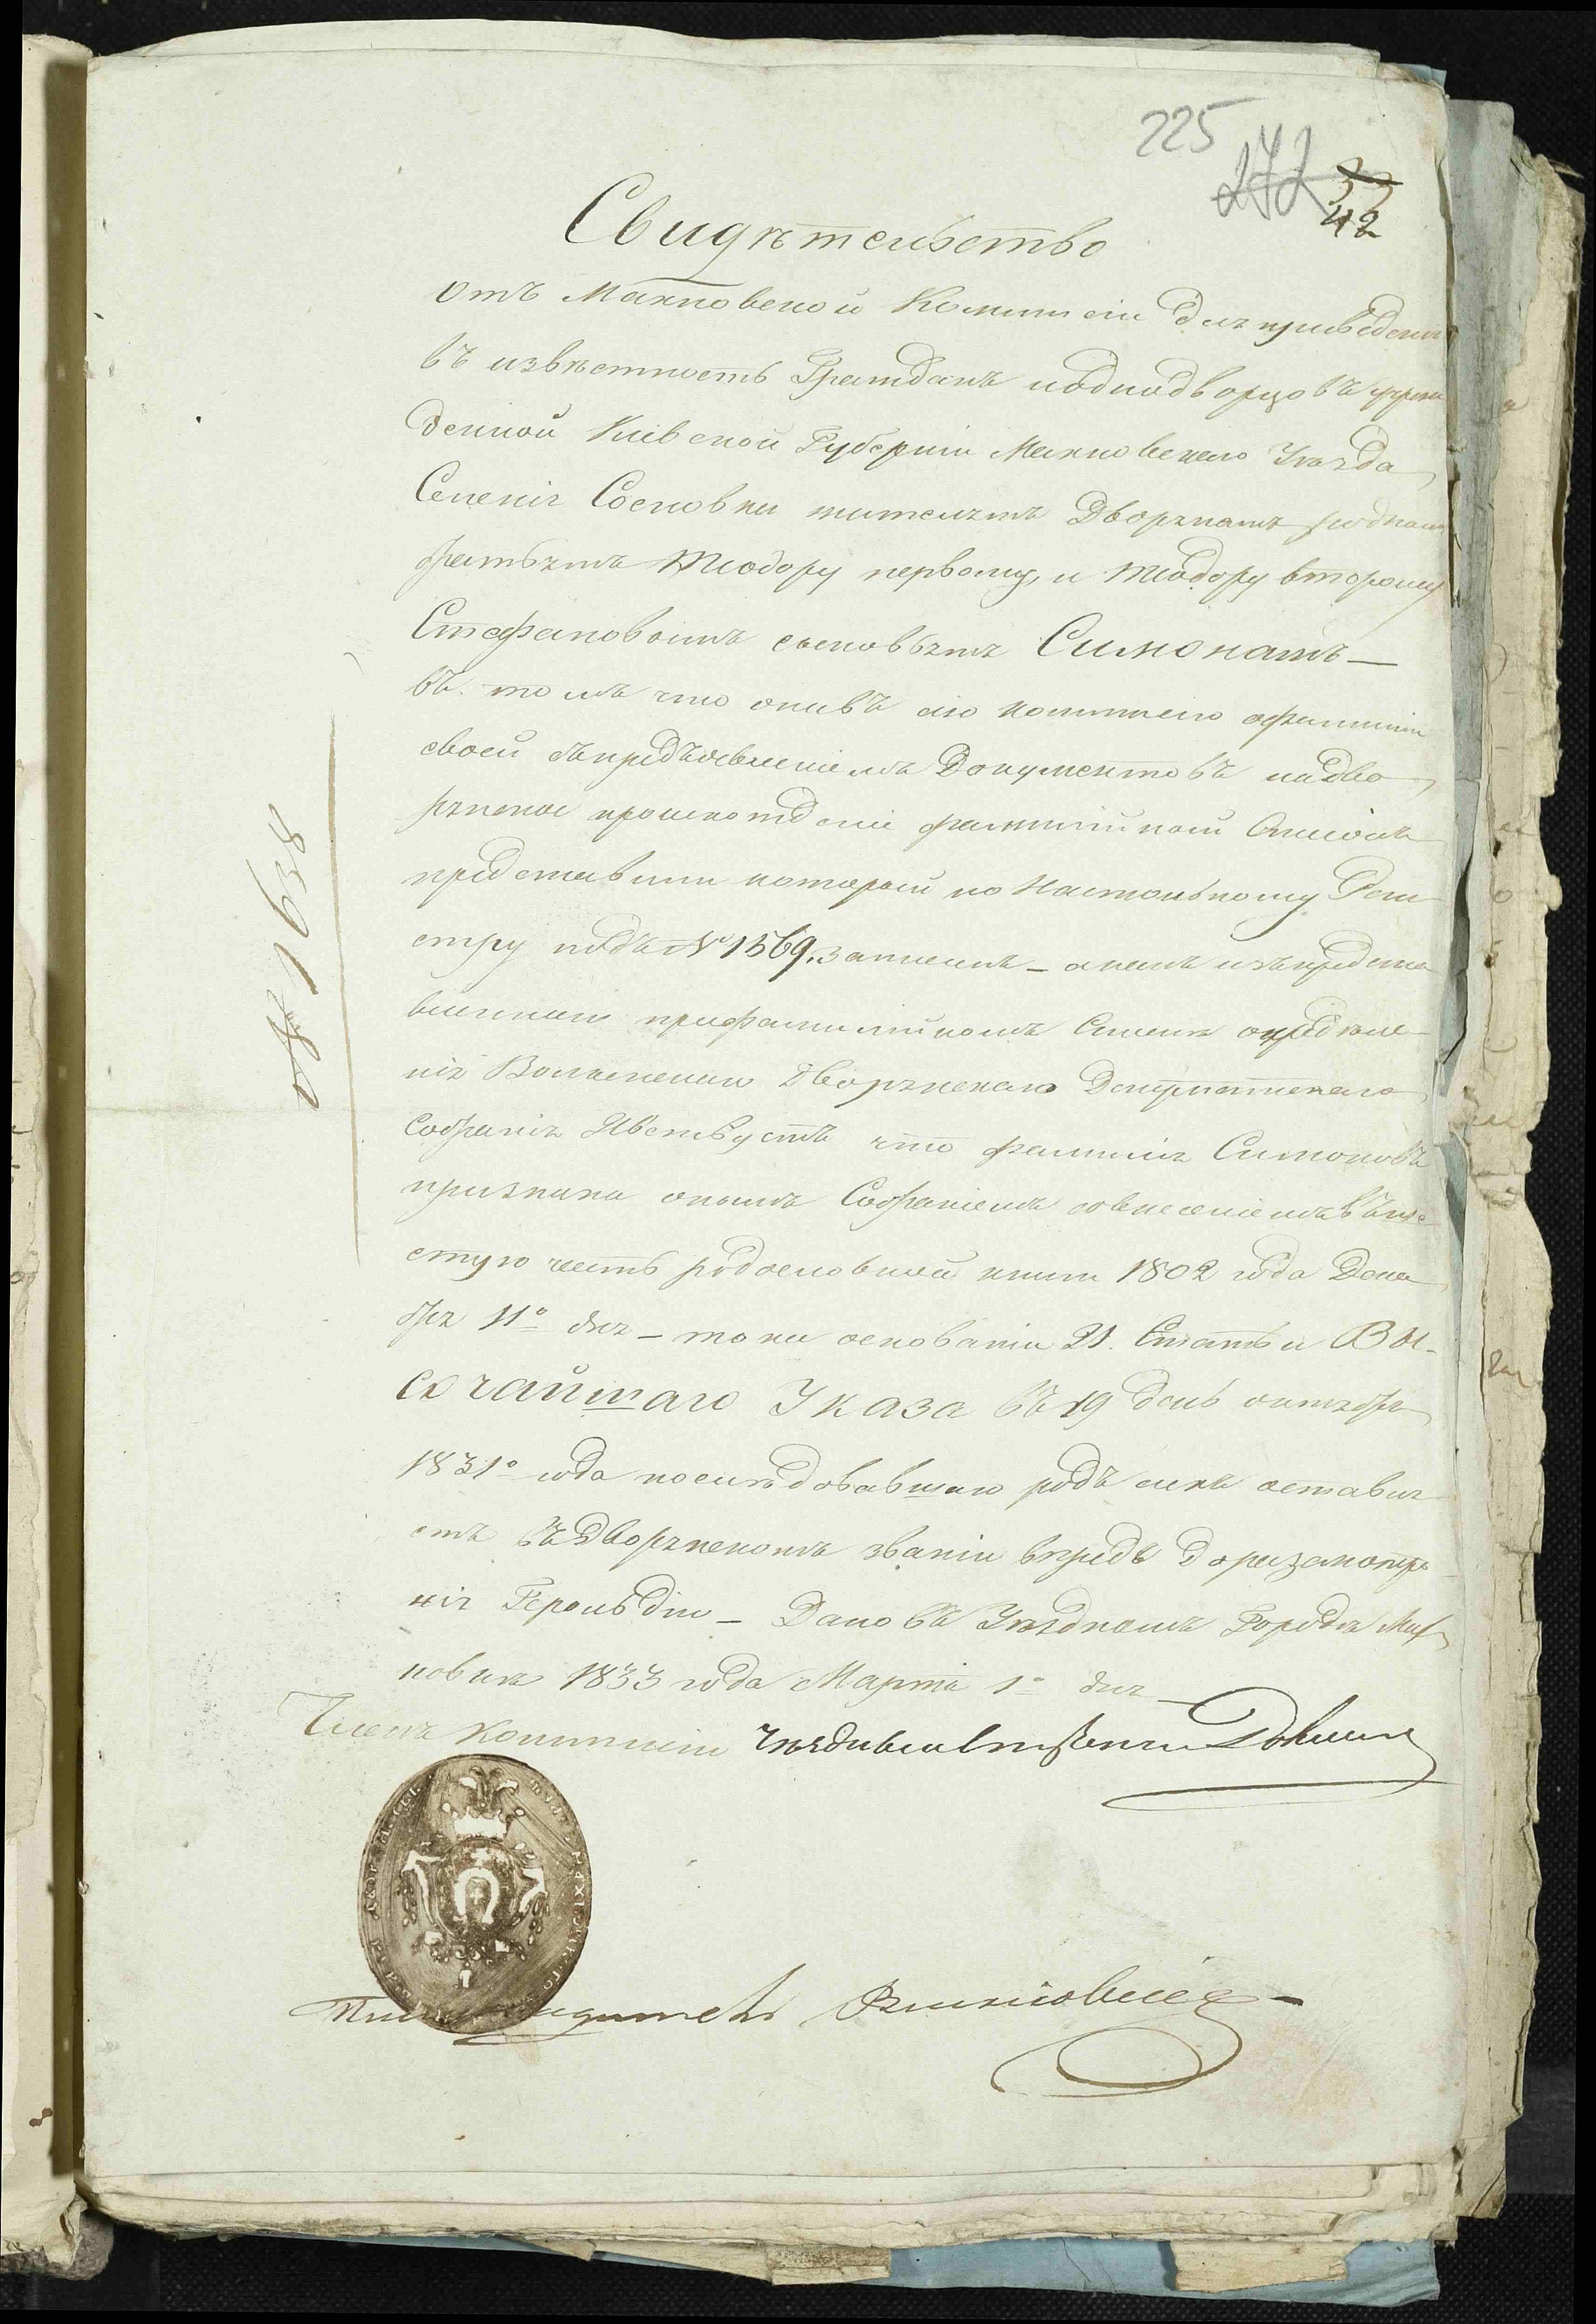 225
272 33
42
Свидѣтельство
Отъ Махновской Коммисіи для приведенія
въ извѣстность Гражданъ и однодворцовъ учреж
денной Кіевской Губерніи Махновскаго Уѣзда
Селенія Сосновки жителямъ Дворянамъ роднымъ
братьямъ Теодору первому, и Теодору второму
Стефановымъ сыновьямъ Симонамъ —
въ томъ что они въ сію коммисію о фамиліи
своей съ предъявленіемъ Документовъ на дво
рянское происхожденіе фамилійной Списокъ
представили который по Настольному Реи
стру подъ № 1569. записанъ — а какъ изъ предста
вленнаго при фамилійномъ Спискѣ опредѣле-
нія Волынскаго Дворянскаго Депутатскаго
Собранія Явствуетъ что фамилія Симоновъ
признана онымъ Собраніемъ со внесеніемъ въ ше
стую часть родословной книги 1802 года Дека
бря 11º дня — то на основаніи 21. Статьи Вы-
сочайшаго Указа въ 19 день октября
1831º года послѣдовавшаго родъ сихъ оставля
етъ въ Дворянскомъ званіи впредь до разсмотре
нія Герольдіи — Дано въ Уѣздномъ Городѣ Мах
новкѣ 1833 года Марта 1º дня
Членъ Коммисіи
№ 1638